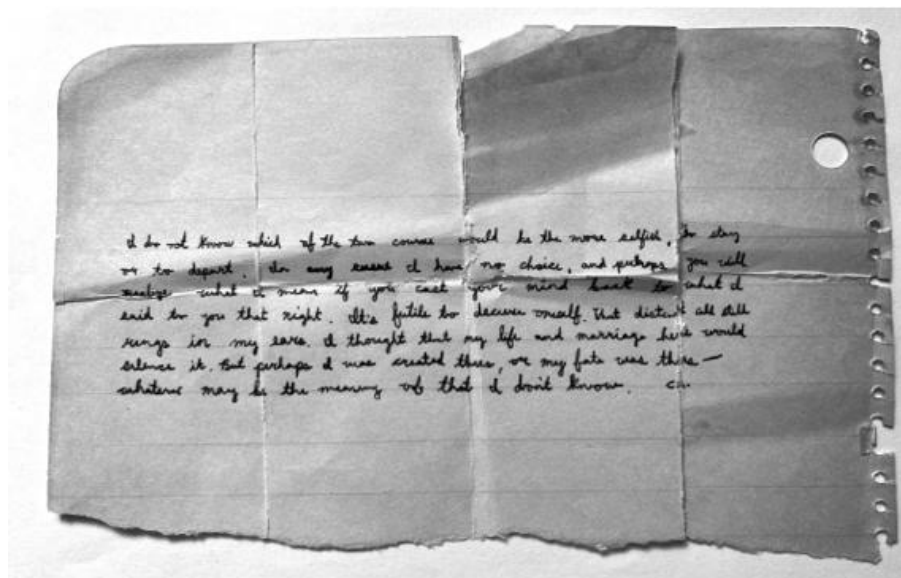 I do not know which of the two courses would be the more selfish, to stay
or to depart. In any event I have no choice, and perhaps you will
realize what I mean if you cast your mind back to what I
said to you that night. It's futile to deceive oneself. That distant call still
rings in my ears. I thought that my life and marriage here would
silence it. But perhaps I was created thus, or my fate was thus —
whatever may be the meaning of that I don't know.